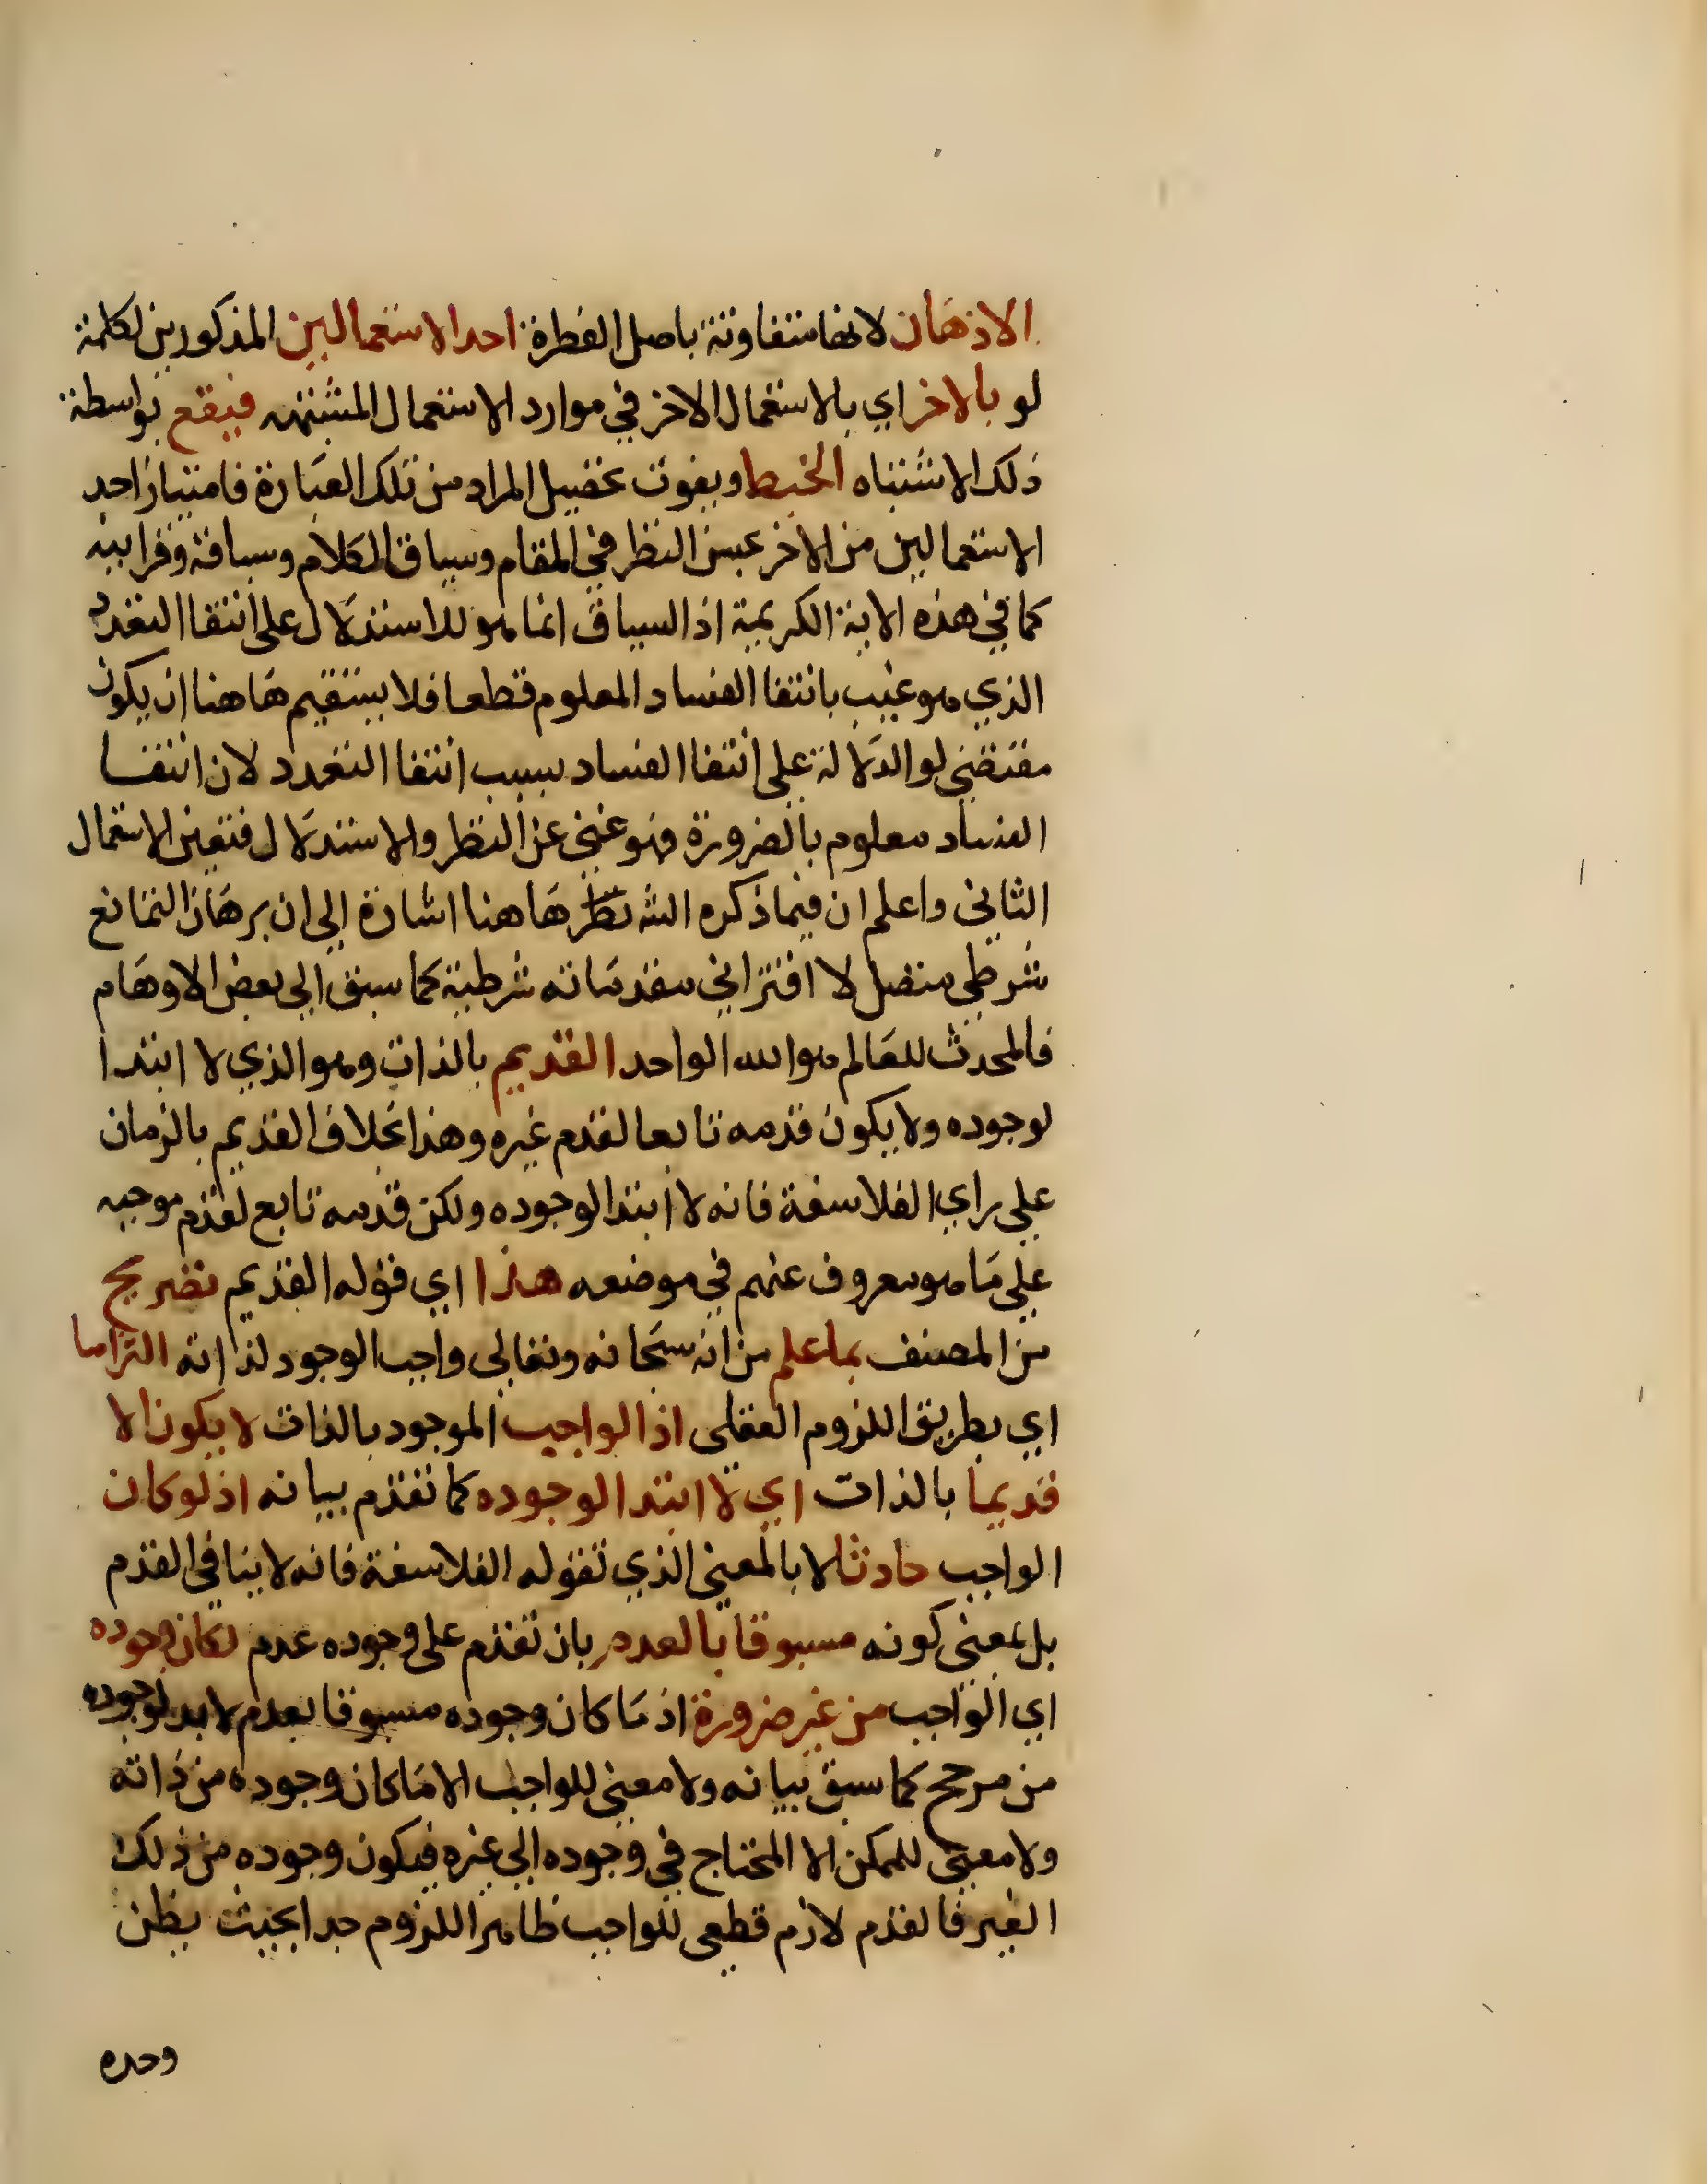 الاذهان لانها متفاوتة باصل الفطرة احد الاستعمالين المذكورين لكلمة
لو بالاخر اي بالاستعمال الاخر في موارد الاستعمال المشتبه فيقع بواسطة
ذلك الاشتباه الخبط ويفوت تحصيل المراد من تلك العبارة فامتياز احد
الاستعمالين من الاخر بحسن النظر في المقام وسياق الكلام وسباقه وقراينه
كما في هذه الاية الكريمة اذ السياق انما هو للاستدلال على انتفا التعدد
الذي هو غيب بانتفا الفساد المعلوم قطعا فلا يستقيم هاهنا ان يكون
مقتضي لو الدلالة على انتفا الفساد بسبب انتفا التعدد لان انتفا
الفساد معلوم بالضرورة فهو غني عن النظر والاستدلال فتعين الاستعمال
الثاني واعلم ان فيما ذكره الش هاهنا اشارة الي ان برهان التمانع
شرطي متصل لا اقتراني مقدماته شرطية كما سبق الي بعض الاوهام
فالمحدث للعالم هو الله الواحد القديم بالذات وهو الذي لا ابتدا
لوجوده ولا يكون قدمه تابعا لقدم غيره وهذا بخلاف القديم بالزمان
علي راي الفلاسفة فانه لا ابتدا لوجوده ولكن قدمه تابع لقدم موجبه
علي ما هو معروف عنهم في موضعه هذا اي قوله القديم تصريح
من المصنف بما علم من انه سبحانه وتعالي واجب الوجود لذاته التزاما
اي بطريق اللزوم العقلي اذ الواجب الموجود بالذات لا يكون الا
قديما بالذات اي لا ابتدا لوجوده كما تقدم بيانه اذ لو كان
الواجب حادثا لا بالمعني الذي تقوله الفلاسفة فانه لا ينافي القدم
بل بمعني كونه مسبوقا بالعدم بان تقدم على وجوده عدم لكان وجوده
اي الواجب من غير ضرورة اذ ما كان وجوده مسبوقا بعدم لا بد لوجوده
من مرجح كما سبق بيانه ولا معني للواجب الا ما كان وجوده من ذاته
ولا معني للممكن الا المحتاج في وجوده الي غيره فيكون وجوده من ذلك
الغير فالقدم لازم قطعي للواجب ظاهر اللزوم جدا بحيث يظن
وحده